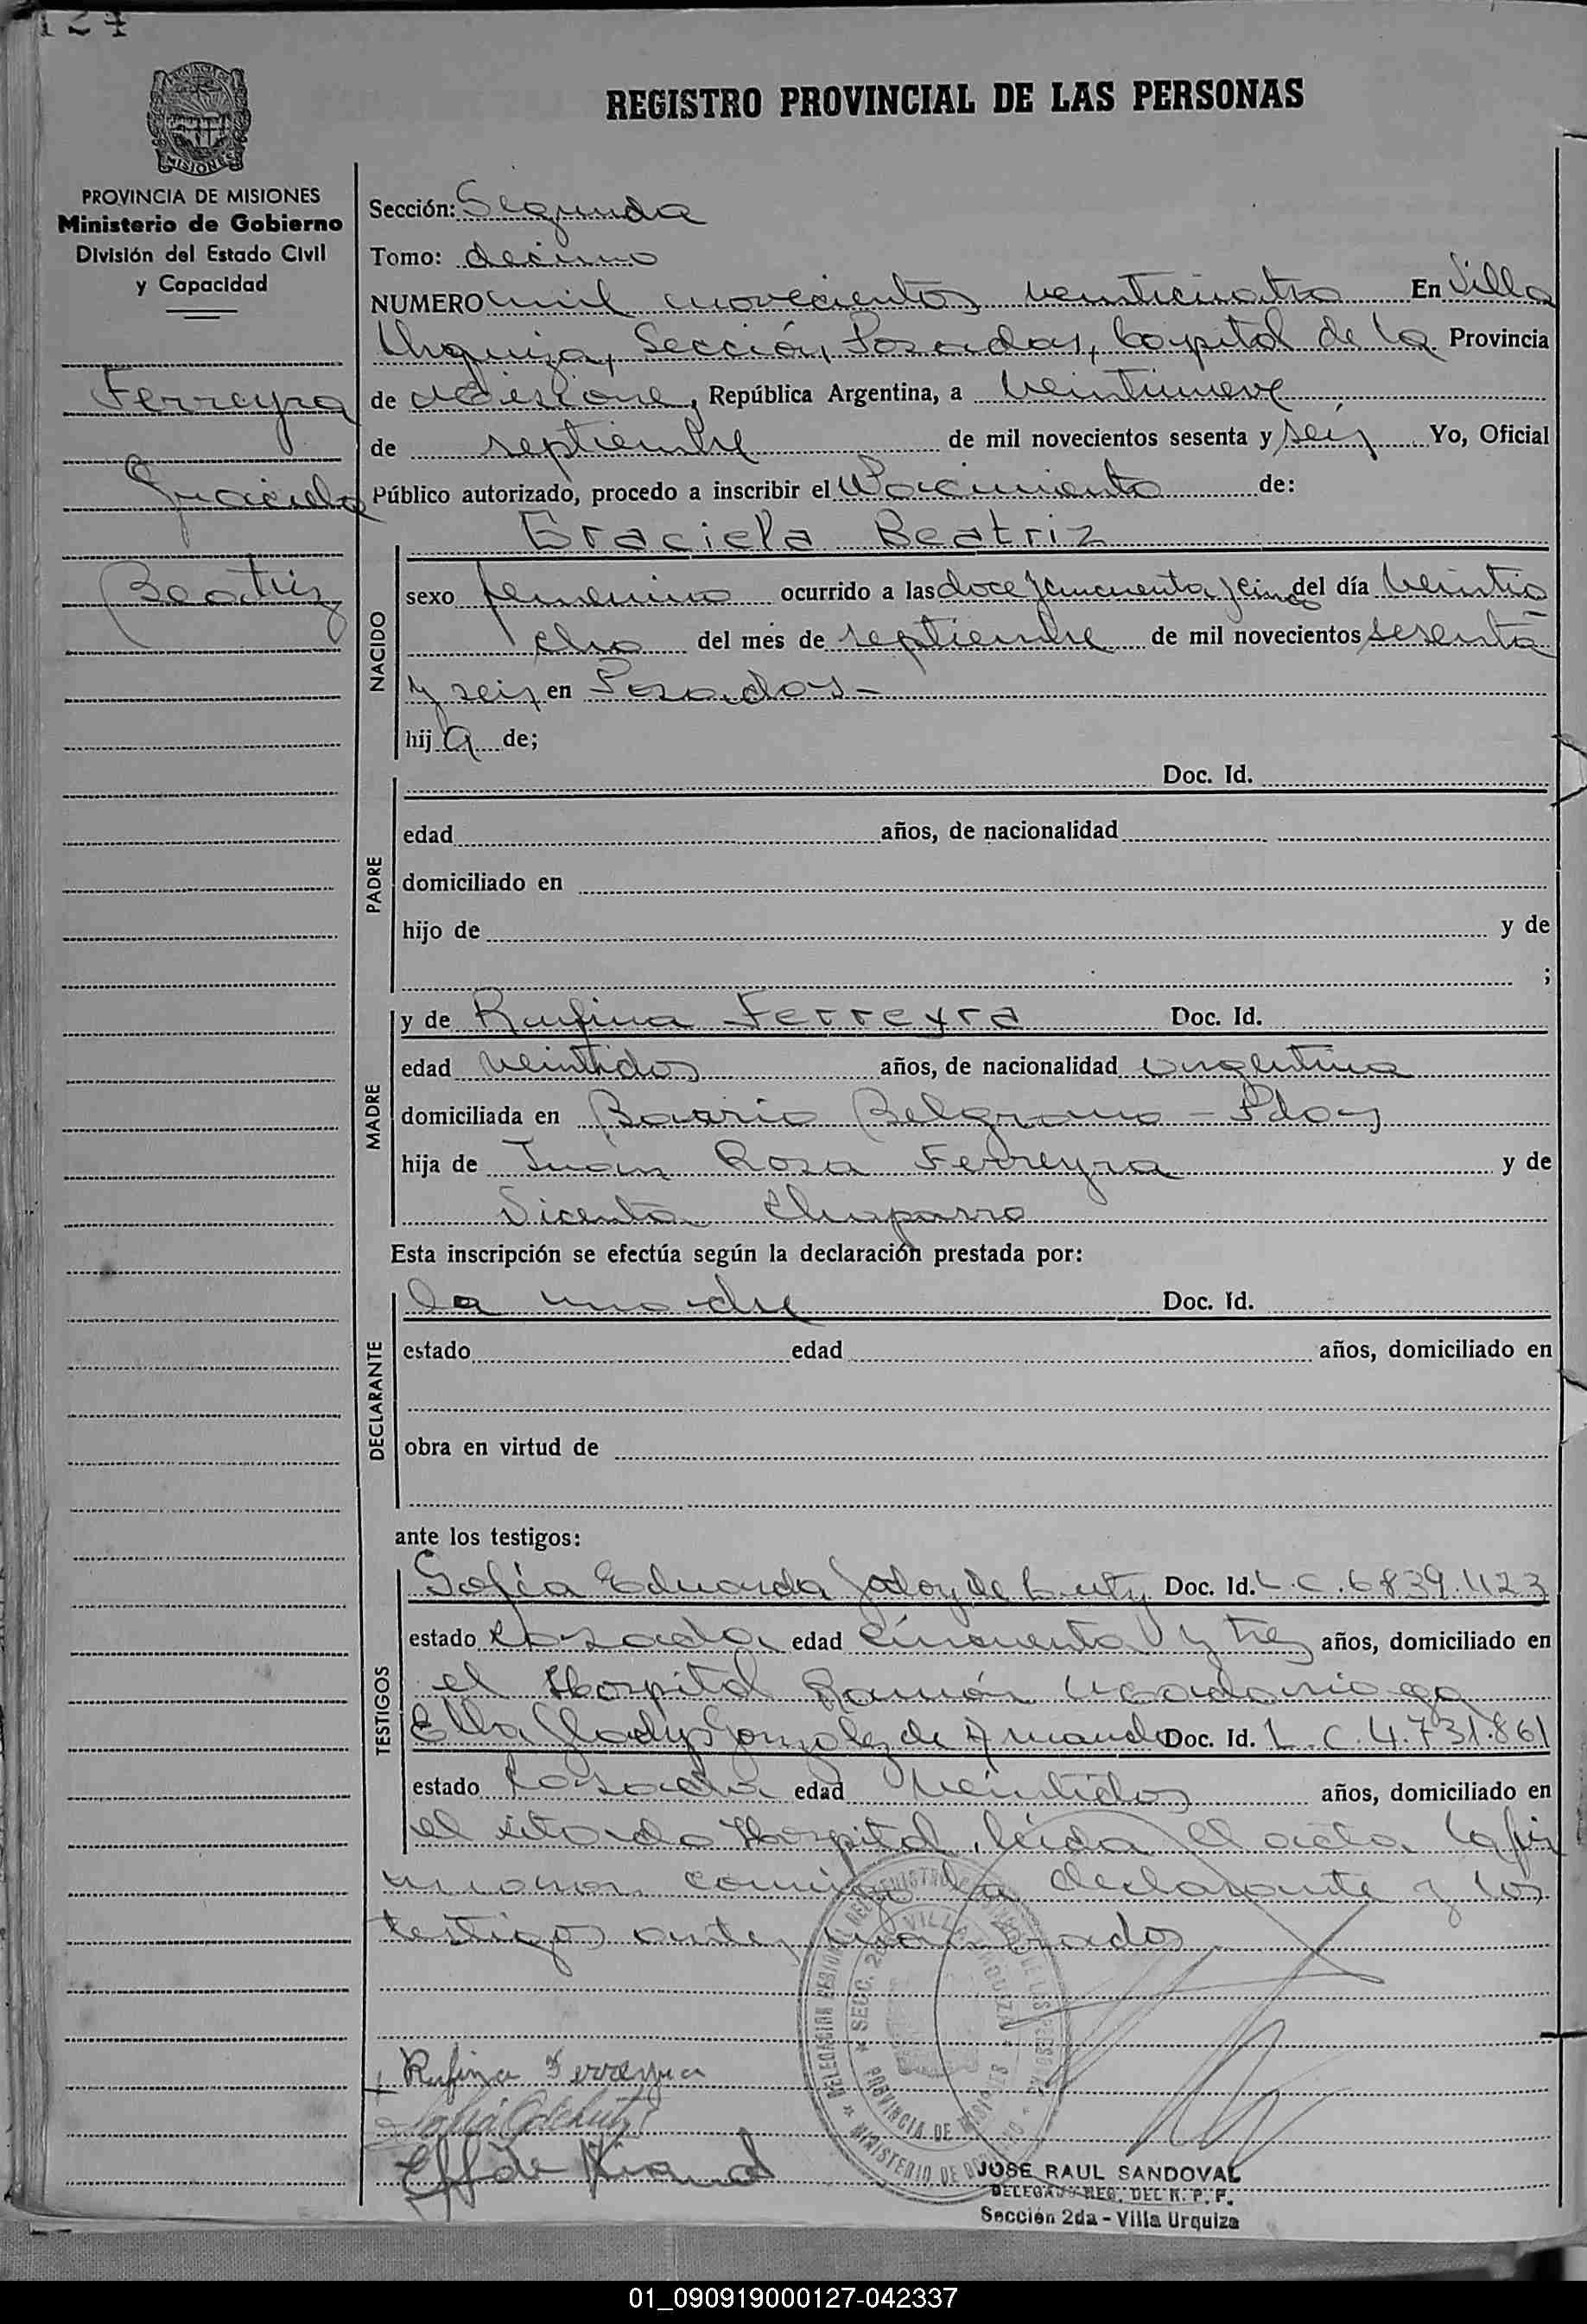 124
REGISTRO PROVINCIAL DE LAS PERSONAS
MISIONES
PROVINCIA DE MISIONES
Ministerio de Gobierno
División del Estado Civil
y Capacidad
Ferreyra
Graciela
Beatriz
Sección: Segunda
Tomo: decimo
NUMERO mil novecientos veinticuatro En Villa
Urquiza, Sección, Posadas, Capital de la Provincia
de Misiones, República Argentina, a veintinueve
de septiembre de mil novecientos sesenta y seis Yo, Oficial
Público autorizado, procedo a inscribir el Nacimiento de:
Graciela Beatriz
NACIDO
sexo femenino ocurrido a las doce y cincuenta y cinco del día veintio
cho del mes de septiembre de mil novecientos sesenta
y seis en Posadas-
hija de;
PADRE
Doc. Id.
edad años, de nacionalidad
domiciliado en
hijo de y de
;
MADRE
y de Rufina Ferreyra Doc. Id.
edad veintidos años, de nacionalidad argentina
domiciliada en Barrio Belgrano - Pdas
hija de Juan Rosa Ferreyra y de
Vicenta Chaparro
Esta inscripción se efectúa según la declaración prestada por:
DECLARANTE
la madre Doc. Id.
estado edad años, domiciliado en
obra en virtud de
ante los testigos:
TESTIGOS
Sofia Eduarda Godoy de Doc. Id. L.C. 6839.423
estado casada edad cincuenta y tres años, domiciliado en
el Hospital Ramón Madariaga
Elba Gladys Gonzalez de Doc. Id. L.C. 4.731.861
estado casada edad veintidos años, domiciliado en
el citado Hospital, leída el acta, la fir
man conmigo la declarante y los
testigos antes nombrados
Rufina Ferreyra
SECC. 2da VILLA URQUIZA
PROVINCIA DE MISIONES
MINISTERIO DE GOBIERNO
JOSE RAUL SANDOVAL
DELEGADO REG. DEL R. P. P.
Sección 2da - Villa Urquiza
01_090919000127-042337